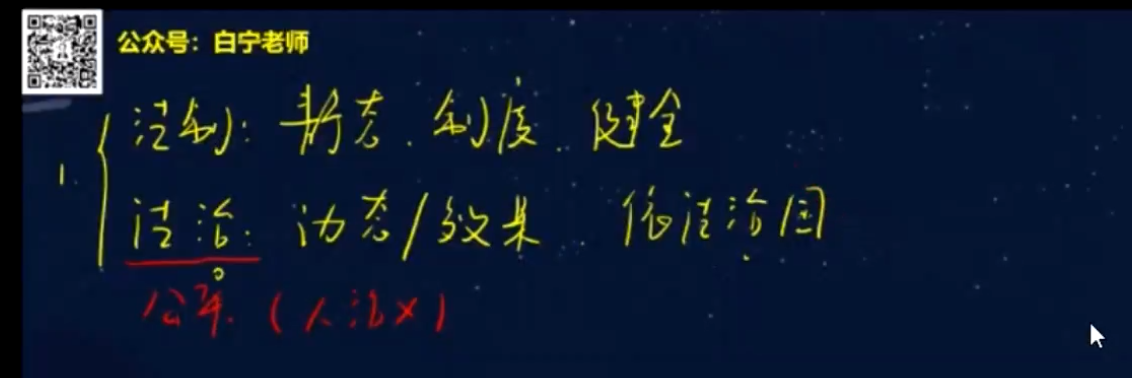 公众号：白宁老师
1. 法制：静态、制度、健全
法治：动态/效果 依法治国
公平.（人治×）